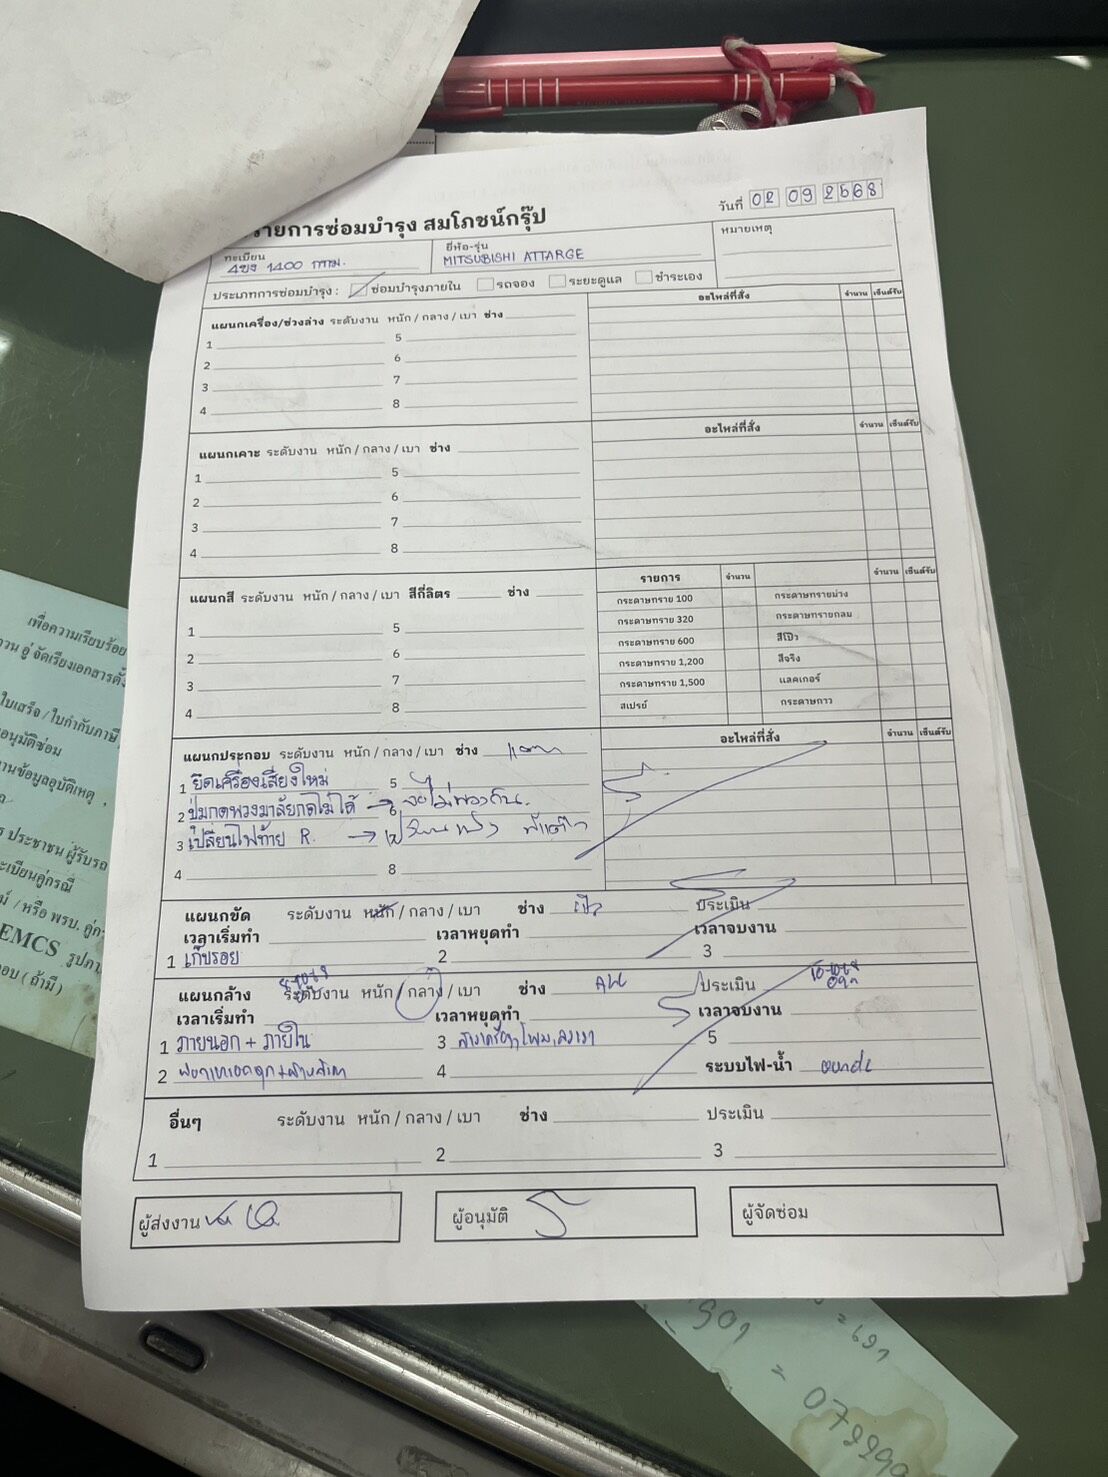 รายการซ่อมบำรุง สมโภชน์กรุ๊ป
วันที่ 02 09 2568
ทะเบียน 4ขง 1400 กทม.
ยี่ห้อ-รุ่น MITSUBISHI ATTARGE
หมายเหตุ
ประเภทการซ่อมบำรุง : ซ่อมบำรุงภายใน รถจอง ระยะดูแล ชำระเอง
แผนกเครื่อง/ช่วงล่าง ระดับงาน หนัก / กลาง / เบา ช่าง
อะไหล่ที่สั่ง จำนวน เซ็นต์รับ
1 5
2 6
3 7
4 8
แผนกเคาะ ระดับงาน หนัก / กลาง / เบา ช่าง
อะไหล่ที่สั่ง จำนวน เซ็นต์รับ
1 5
2 6
3 7
4 8
แผนกสี ระดับงาน หนัก / กลาง / เบา สีกี่ลิตร ช่าง
รายการ จำนวน จำนวน เซ็นต์รับ
1 5
2 6
3 7
4 8
กระดาษทราย 100 กระดาษทรายม่วง
กระดาษทราย 320 กระดาษทรายกลม
กระดาษทราย 600 สีโป๊ว
กระดาษทราย 1,200 สีจริง
กระดาษทราย 1,500 แลคเกอร์
สเปรย์ กระดาษกาว
แผนกประกอบ ระดับงาน หนัก / กลาง / เบา ช่าง
อะไหล่ที่สั่ง จำนวน เซ็นต์รับ
1 ยึดเครื่องเสียงใหม่ 5
2 ปุ่มกดพวงมาลัยกดไม่ได้ →
3 เปลี่ยนไฟท้าย R. →
4 8
แผนกขัด ระดับงาน หนัก / กลาง / เบา ช่าง ประเมิน
เวลาเริ่มทำ เวลาหยุดทำ เวลาจบงาน
1 เก็บรอย 2 3
แผนกล้าง ระดับงาน หนัก / กลาง / เบา ช่าง ประเมิน
เวลาเริ่มทำ เวลาหยุดทำ เวลาจบงาน
1 ภายนอก + ภายใน 3 5
2 4 ระบบไฟ-น้ำ
อื่นๆ ระดับงาน หนัก / กลาง / เบา ช่าง ประเมิน
1 2 3
ผู้ส่งงาน
ผู้อนุมัติ
ผู้จัดซ่อม
เพื่อความเรียบร้อย
อู่ จัดเรียงเอกสารดั
ใบเสร็จ / ใบกำกับภาษี
อนุมัติซ่อม
านข้อมูลอุบัติเหตุ
ร ประชาชน ผู้รับรถ
ะเบียนคู่กรณี
/ หรือ พรบ. คู่ก
EMCS รูปถ
อบ ( ถ้ามี )